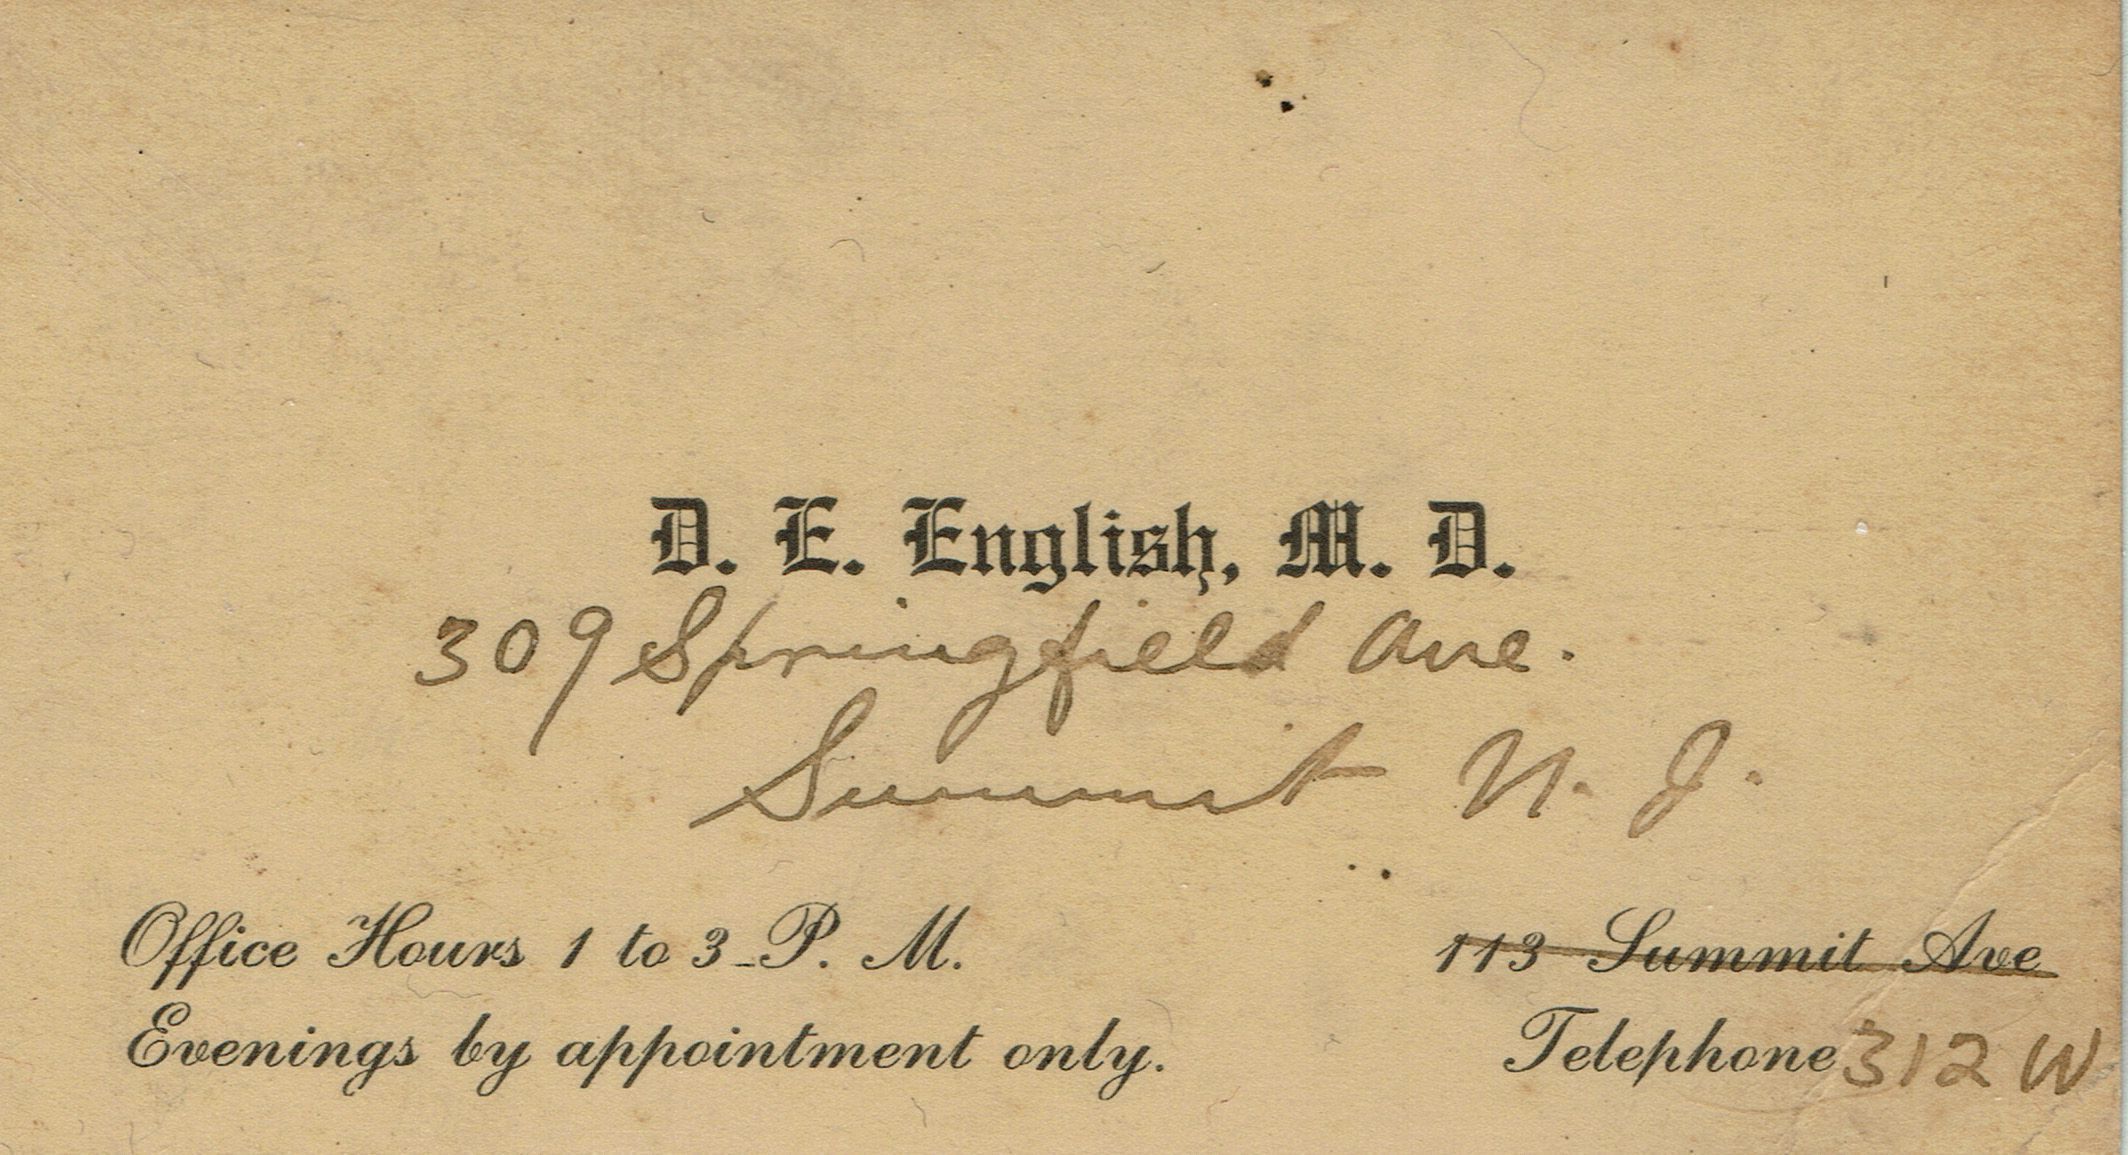 D. E. English, M. D.
309 Springfield Ave.
Summit N. J.
Office Hours 1 to 3 P. M.
Evenings by appointment only.
113 Summit Ave
Telephone 312 W